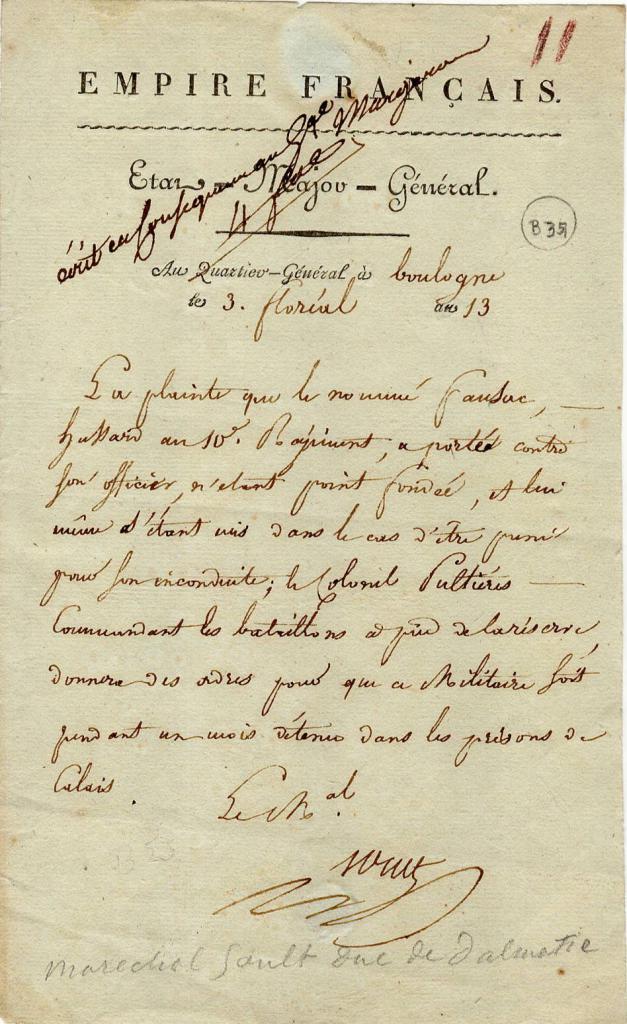 11
EMPIRE FRANÇAIS.
écrit en conséquence au Gal
4 floréal
Etat-Major-Général.
B 35
Au Quartier-Général à boulogne
le 3. floréal an 13
La plainte que le nommé
hussard au 10e. Régiment, a portée contre
son officier, n'etant point fondée, et lui
même s'étant mis dans le cas d'être puni
pour son inconduite; le Colonel
Commandant les bataillons à pied de la réserve,
donnera des ordres pour que ce Militaire soit
pendant un mois détenu dans les prisons de
Calais.
Le Mal.
Soult
Marechal Soult duc de Dalmatie